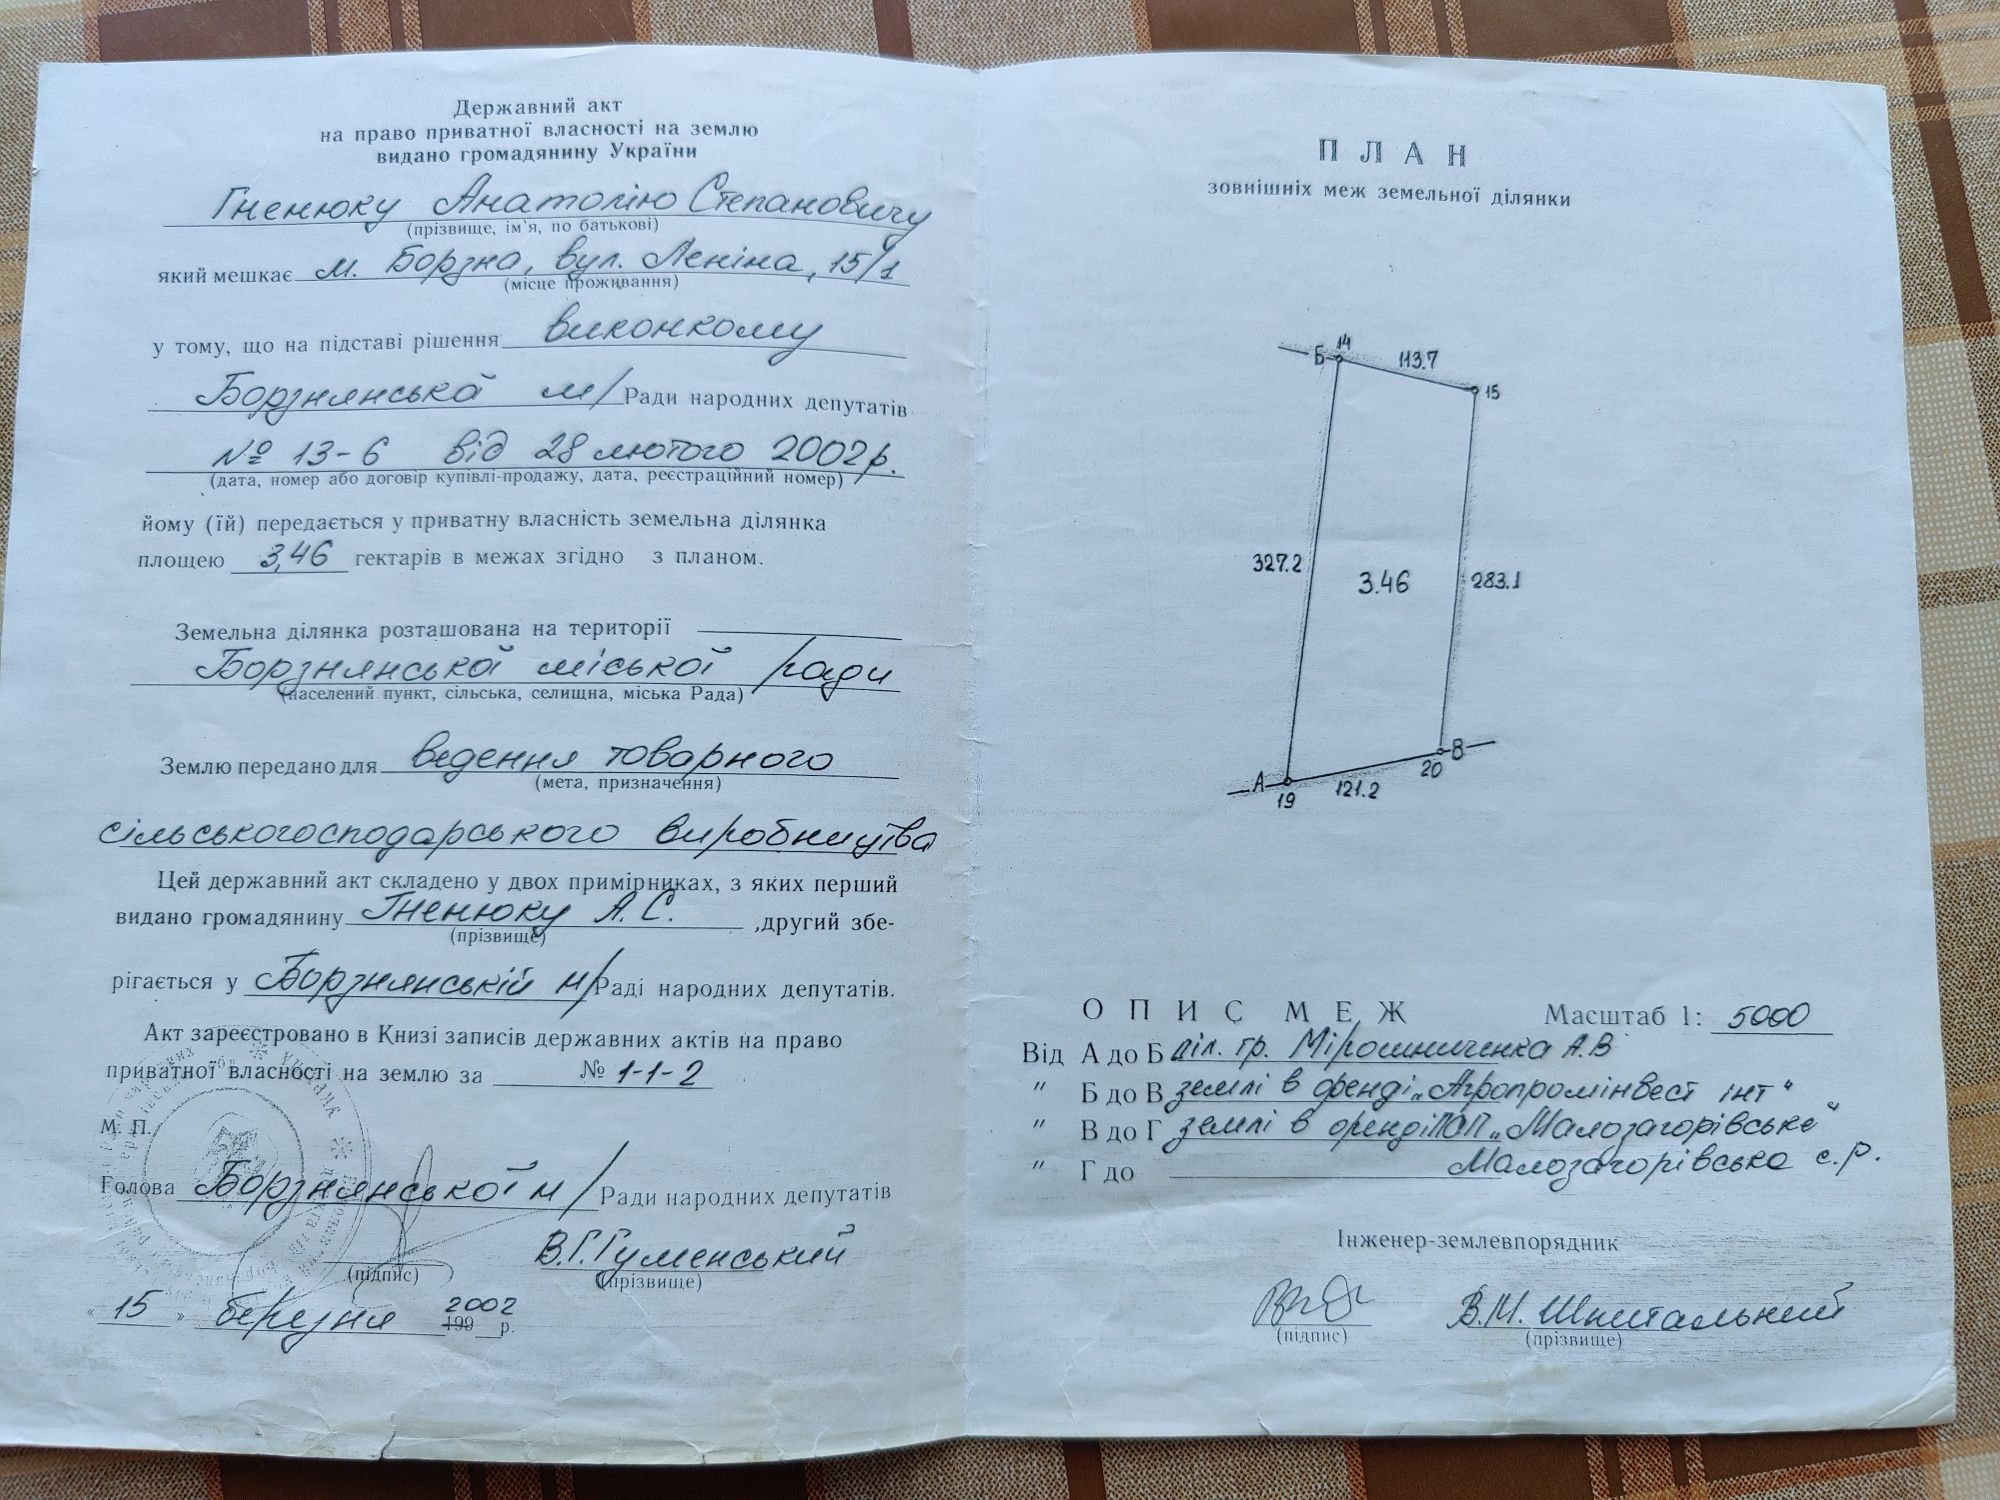 Державний акт
на право приватної власності на землю
видано громадянину України
Гненюку Анатолію Степановичу
(прізвище, ім'я, по батькові)
який мешкає м. Борзна, вул. Леніна, 15/1
(місце проживання)
у тому, що на підставі рішення виконкому
Борзнянська м/Ради народних депутатів
№ 13-6 від 28 лютого 2002р.
(дата, номер або договір купівлі-продажу, дата, реєстраційний номер)
йому (їй) передається у приватну власність земельна ділянка
площею 3,46 гектарів в межах згідно з планом.
Земельна ділянка розташована на території
Борзнянської міської ради
(населений пункт, сільська, селищна, міська Рада)
Землю передано для ведення товарного
(мета, призначення)
сільськогосподарського виробництва
Цей державний акт складено у двох примірниках, з яких перший
видано громадянину Гненюку А.С. ,другий збе-
(прізвище)
рігається у Борзнянській м/Раді народних депутатів.
Акт зареєстровано в Книзі записів державних актів на право
приватної власності на землю за № 1-1-2
М. П.
Голова Борзнянської м/Ради народних депутатів
В.Г.Гуменський
(підпис) (прізвище)
"15" березня 2002 199 р.
ПЛАН
зовнішніх меж земельної ділянки
Б 14 113.7 15
327.2 3.46 283.1
А 19 121.2 20 В
ОПИС МЕЖ Масштаб 1: 5000
Від А до Б діл. гр. Мірошниченка А.В
" Б до В землі в оренді „Агропромінвест інт"
" В до Г землі в оренді ПСП „Малозагорівське"
" Г до Малозагорівська с.р.
Інженер-землевпорядник
В.М. Шпитальний
(підпис) (прізвище)